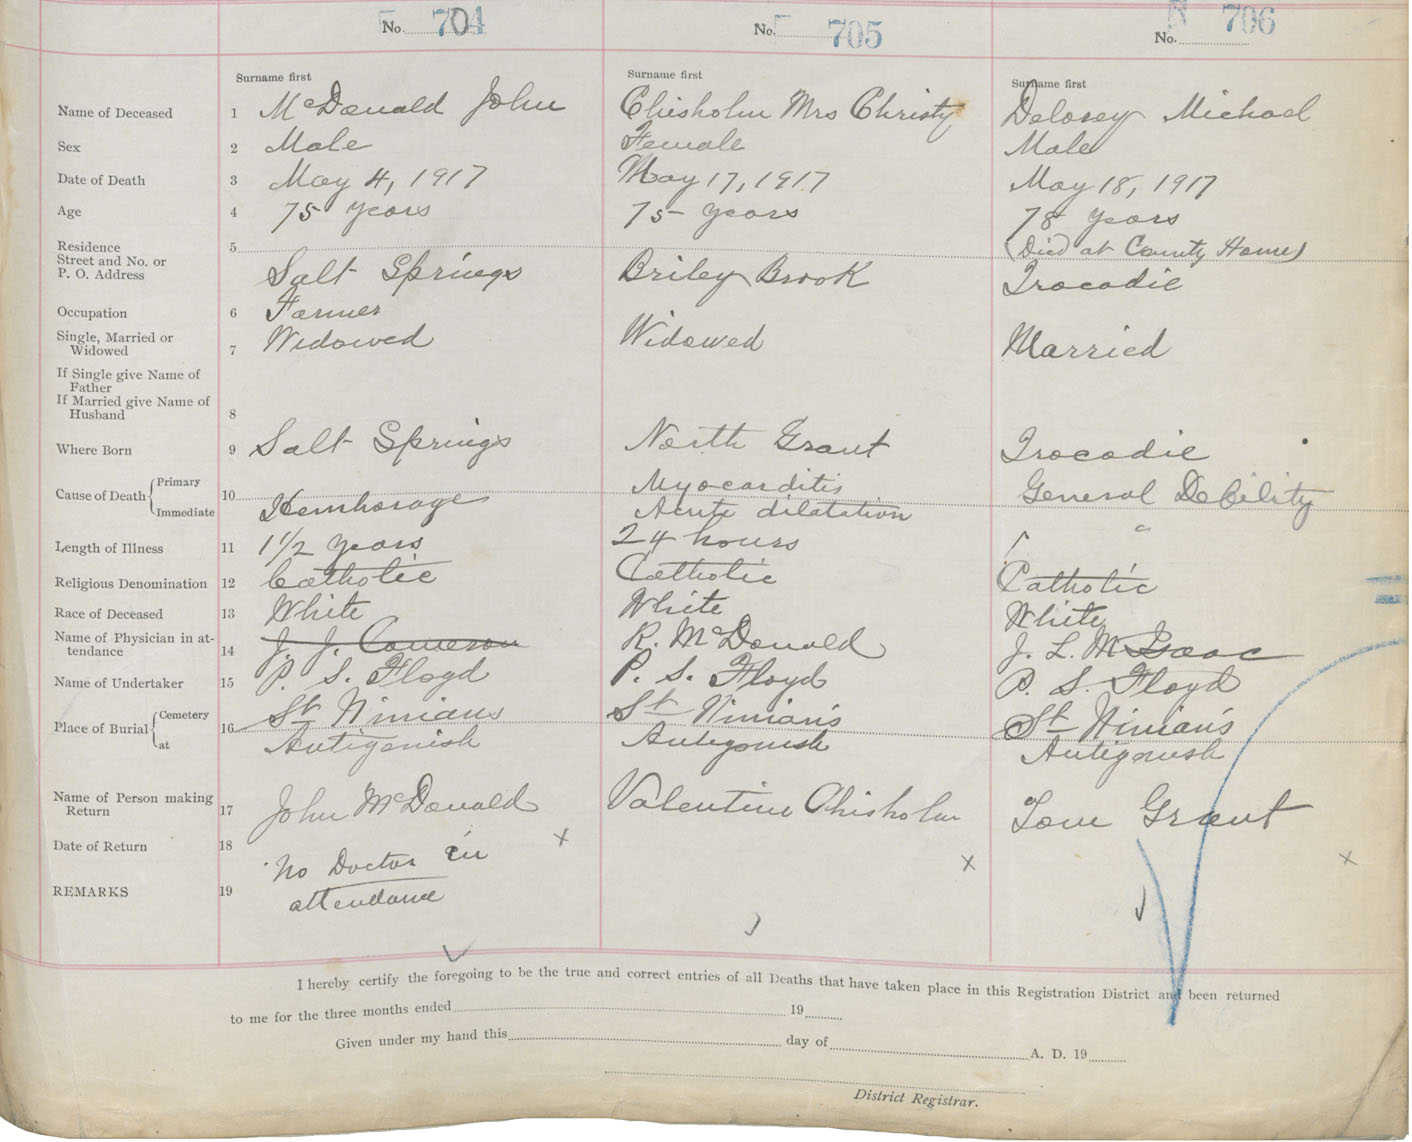 No. 704
No. 705
No. 706
Surname first
Surname first
Surname first
Name of Deceased 1 McDonald John
Chisholm Mrs Christy
Delorey Michael
Sex 2 Male
Female
Male
Date of Death 3 May 4, 1917
May 17, 1917
May 18, 1917
Age 4 75 years
75 years
78 years
Residence 5
Street and No. or
P. O. Address
Salt Springs
Briley Brook
(Died at County Home)
Tracadie
Occupation 6 Farmer
Single, Married or
Widowed 7 Widowed
Widowed
Married
If Single give Name of
Father
If Married give Name of
Husband 8
Where Born 9 Salt Springs
North Grant
Tracadie
Cause of Death { Primary
Immediate 10
Hemhorage
Myocarditis
Acute dilatation
General Debility
"
Length of Illness 11 1 1/2 years
24 hours
Religious Denomination 12 Catholic
Catholic
Catholic
Race of Deceased 13 White
White
White
Name of Physician in at-
tendance 14 J. J. Cameron
R. McDonald
J. L. McIsaac
Name of Undertaker 15 P. S. Floyd
P. S. Floyd
P. S. Floyd
Place of Burial { Cemetery
at 16
St Ninians
Antigonish
St Ninian's
Antigonish
St Ninian's
Antigonish
Name of Person making
Return 17 John McDonald
Valentine Chisholm
Tom Grant
Date of Return 18
REMARKS 19
No Doctor in
attendance
x
x
x
I hereby certify the foregoing to be the true and correct entries of all Deaths that have taken place in this Registration District and been returned
to me for the three months ended 19
Given under my hand this day of A. D. 19
District Registrar.